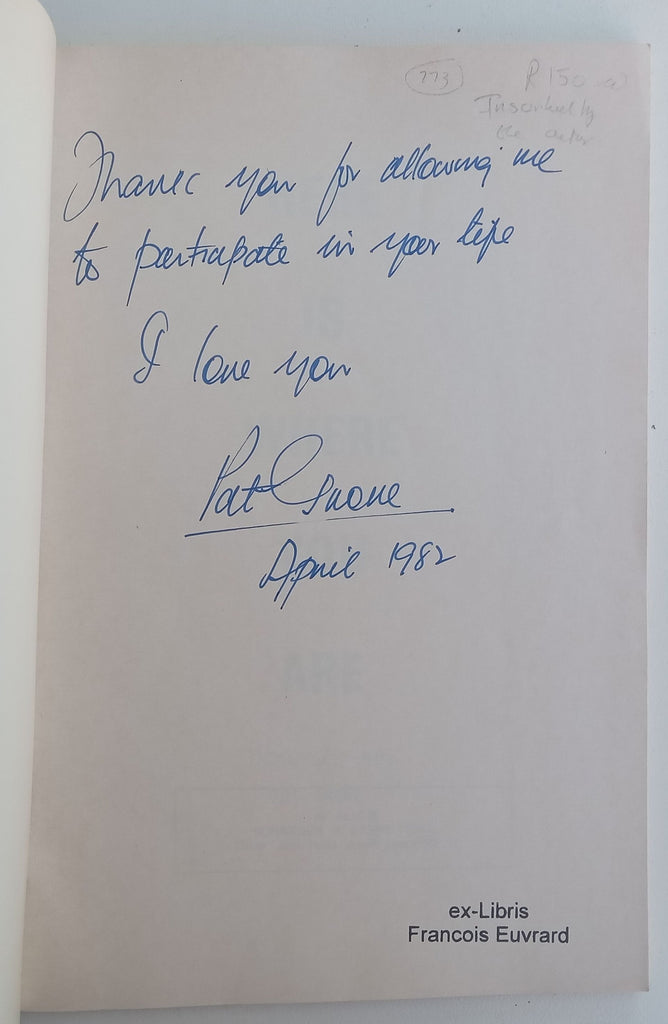 773
R150
Inscribed by
the author
Thank you for allowing me
to participate in your life
I love you
Pat Grove
April 1982
ARE
ex-Libris
Francois Euvrard